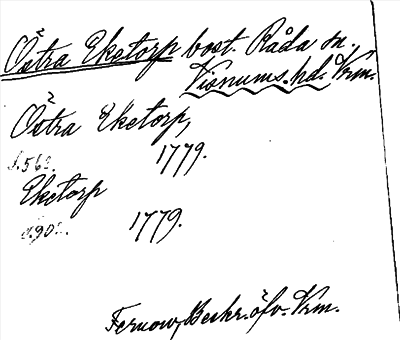 Östra Eketorp bost. Råda sn.
Visnums. hd. Vrm.
Östra Eketorp,
s. 562. 1779.
Eketorp
s. 902. 1779.
Fernow, Beskr. öfv. Vrm.